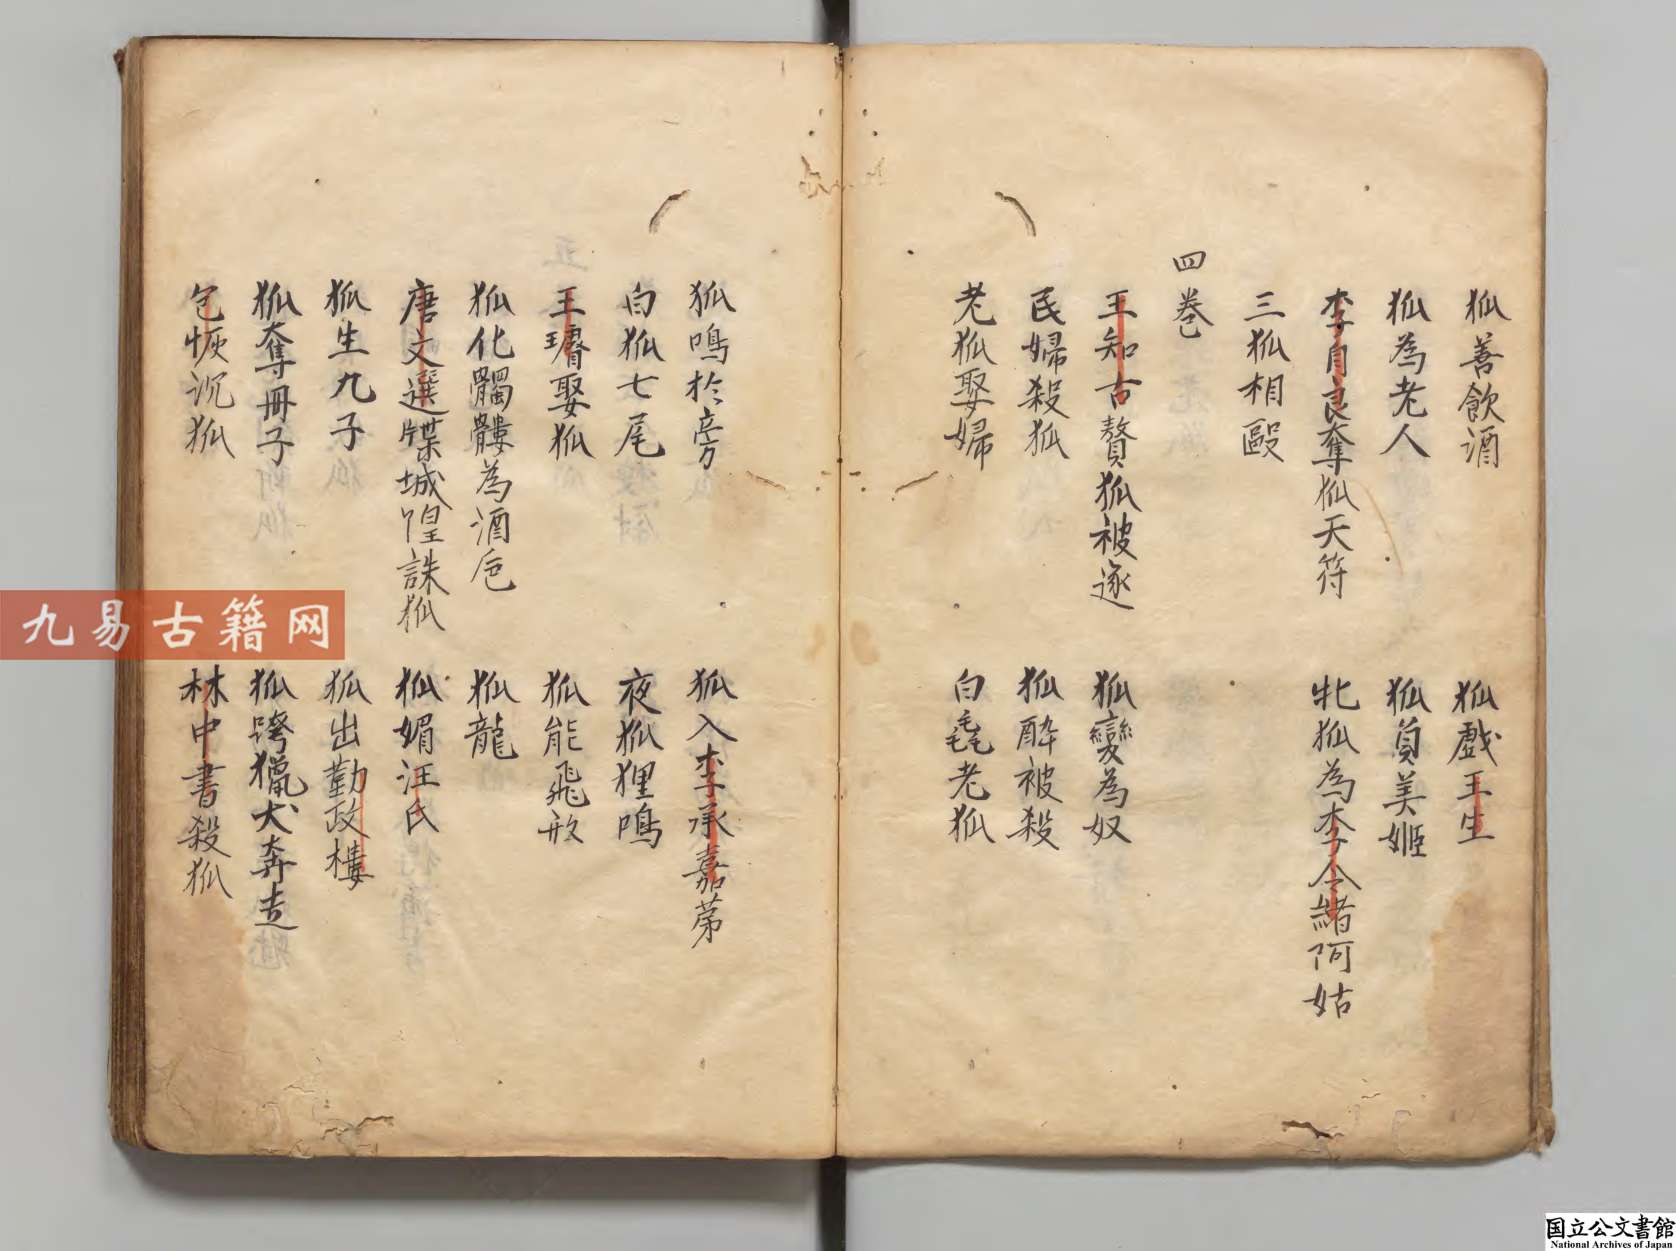 狐善飲酒
狐戲王生
狐為老人
狐負美姬
李自良奪狐天符
牝狐為李令緒阿姑
三狐相毆
四卷
王知古贅狐被逐
狐變為奴
民婦殺狐
狐醉被殺
老狐娶婦
白毳老狐
狐鳴於旁
狐入李承嘉第
白狐七尾
夜狐狸鳴
王璿娶狐
狐能飛形
狐化髑髏為酒卮
狐龍
唐文選牒城隍誅狐
狐媚汪氏
狐生九子
狐出勤政樓
狐奪冊子
狐跨獵犬奔走
包恢沉狐
林中書殺狐
九易古籍网
国立公文書館
National Archives of Japan